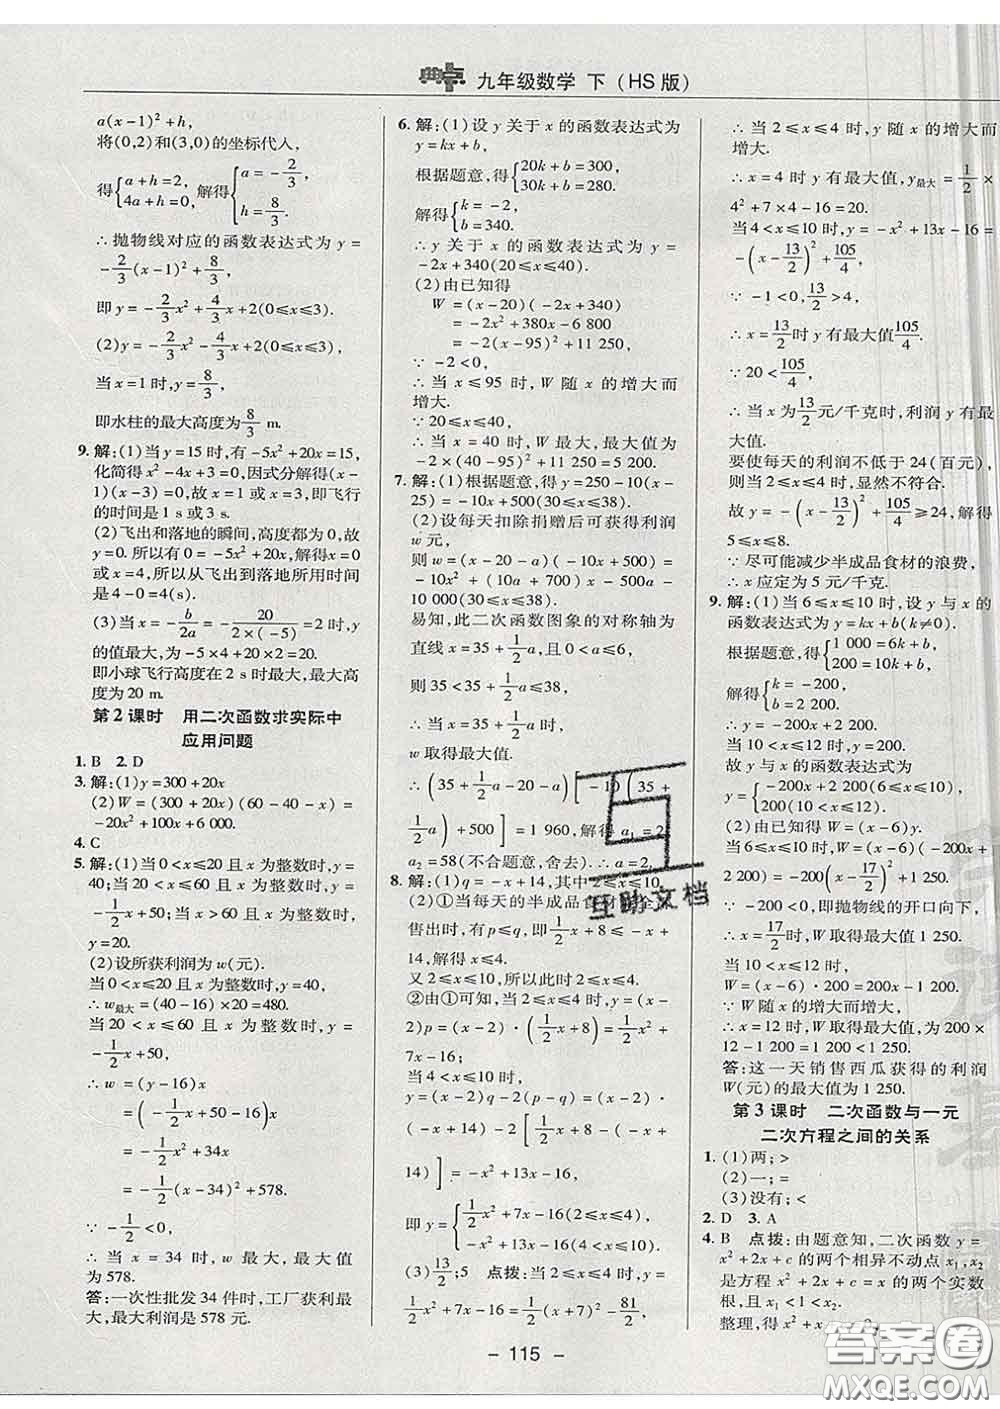 典点 九年级数学 下(HS版)
a(x-1)²+h,
将(0,2)和(3,0)的坐标代人,
得{a+h=2, 4a+h=0, 解得{a=-2/3, h=8/3.
∴抛物线对应的函数表达式为 y=
-2/3(x-1)²+8/3,
即 y=-2/3x²+4/3x+2(0≤x≤3)
(2)y=-2/3x²-4/3x+2(0≤x≤3),
当 x=1 时,y=8/3,
即水柱的最大高度为8/3 m.
9. 解:(1)当 y=15 时,有-5x²+20x=15,
化简得 x²-4x+3=0,因式分解得(x-
1)(x-3)=0,故 x=1 或 x=3,即飞行
的时间是 1 s 或 3 s.
(2)飞出和落地的瞬间,高度都为 0,
故 y=0. 所以有 0=-5x²+20x,解得 x=0
或 x=4,所以从飞出到落地所用时间
是 4-0=4(s).
(3)当 x=-b/2a=-20/2×(-5)=2 时,y
的值最大,为-5×4+20×2=20.
即小球飞行高度在 2 s 时最大,最大高
度为 20 m.
第 2 课时 用二次函数求实际中
应用问题
1. B 2. D
3. 解:(1)y=300+20x
(2)W=(300+20x)(60-40-x)=
-20x²+100x+6 000.
4. C
5. 解:(1)当 0<x≤20 且 x 为整数时,y=
40;当 20<x≤60 且 x 为整数时,y=
-1/2x+50;当 x>60 且 x 为整数时,
y=20.
(2)设所获利润为 w(元).
当 0<x≤20 且 x 为整数时,y=40,
∴w最大=(40-16)×20=480.
当 20<x≤60 且 x 为整数时,y=
-1/2x+50,
∴w=(y-16)x
=(-1/2x+50-16)x
=-1/2x²+34x
=-1/2(x-34)²+578.
∵-1/2<0,
∴当 x=34 时,w 最大,最大值
为 578.
答:一次性批发 34 件时,工厂获利最
大,最大利润是 578 元.
6. 解:(1)设 y 关于 x 的函数表达式为
y=kx+b,
根据题意,得{20k+b=300, 30k+b=280.
解得{k=-2, b=340.
∴y 关于 x 的函数表达式为 y=
-2x+340(20≤x≤40).
(2)由已知得
W=(x-20)(-2x+340)
=-2x²+380x-6 800
=-2(x-95)²+11 250,
∵-2<0,
∴当 x≤95 时,W 随 x 的增大而
增大.
∵20≤x≤40,
∴当 x=40 时,W 最大,最大值为
-2×(40-95)²+11 250=5 200.
7. 解:(1)根据题意,得 y=250-10(x-
25)=-10x+500(30≤x≤38).
(2)设每天扣除捐赠后可获得利润
w 元,
则 w=(x-20-a)(-10x+500)=
-10x²+(10a+700)x-500a-
10 000(30≤x≤38).
易知,此二次函数图象的对称轴为
直线 x=35+1/2a,且 0<a≤6,
则 35<35+1/2a≤38,
∴当 x=35+1/2a 时,
w 取得最大值.
∴(35+1/2a-20-a)[-10(35+
1/2a)+500]=1 960,解得 a₁=2,
a₂=58(不合题意,舍去). ∴a=2.
8. 解:(1)q=-x+14,其中 2≤x≤10.
(2)①当每天的半成品食材能全
售出时,有 p≤q,即1/2x+8≤-x+
14,解得 x≤4.
又 2≤x≤10,所以此时 2≤x≤4.
②由①可知,当 2≤x≤4 时,y=(x-
2)p=(x-2)·(1/2x+8)=1/2x²+
7x-16;
当 4<x≤10 时,
y=(x-2)q-2(p-q)=(x-2)·
(-x+14)-2[1/2x+8-(-x+
14)]=-x²+13x-16,
即 y={1/2x²+7x-16(2≤x≤4), -x²+13x-16(4<x≤10).
(3)13/2;5 点拨:当 2≤x≤4 时,y=
1/2x²+7x-16=1/2(x+7)²-81/2,
∴当 2≤x≤4 时,y 随 x 的增大而
增大.
∴x=4 时 y 有最大值,y最大=1/2×
4²+7×4-16=20.
当 4<x≤10 时,y=-x²+13x-16=
-(x-13/2)²+105/4,
∵-1<0,13/2>4,
∴x=13/2时 y 有最大值105/4.
∵20<105/4,
∴当 x 为13/2元/千克时,利润 y 有最
大值.
要使每天的利润不低于 24(百元),
则当 2≤x≤4 时,显然不符合.
故 y=-(x-13/2)²+105/4≥24,解得
5≤x≤8.
∵尽可能减少半成品食材的浪费,
∴x 应定为 5 元/千克.
9. 解:(1)当 6≤x≤10 时,设 y 与 x 的
函数表达式为 y=kx+b(k≠0).
根据题意,得{1 000=6k+b, 200=10k+b,
解得{k=-200, b=2 200.
∴y=-200x+2 200.
当 10<x≤12 时,y=200.
故 y 与 x 的函数表达式为
y={-200x+2 200(6≤x≤10), 200(10<x≤12).
(2)由已知得 W=(x-6)y.
当 6≤x≤10 时,W=(x-6)(-200x+
2 200)=-200(x-17/2)²+1 250,
∵-200<0,即抛物线的开口向下,
∴x=17/2时,W 取最大值 1 250.
当 10<x≤12 时,
W=(x-6)·200=200x-1 200.
∵W 随 x 的增大而增大,
∴x=12 时,W 取得最大值,为 200
×12-1 200=1 200<1 250.
答:这一天销售西瓜获得的利润
W(元)的最大值为 1 250.
第 3 课时 二次函数与一元
二次方程之间的关系
1. (1)两;>
(2)一;=
(3)没有;<
2. D 3. A
4. B 点拨:由题意知,二次函数 y=
x²+2x+c 的两个相异不动点 x₁,x₂
是方程 x²+2x+c=x 的两个实数
根,且 x₁<1<x₂.
整理,得 x²+x+
- 115 -
互助文档
答案圈
MXQE.COM